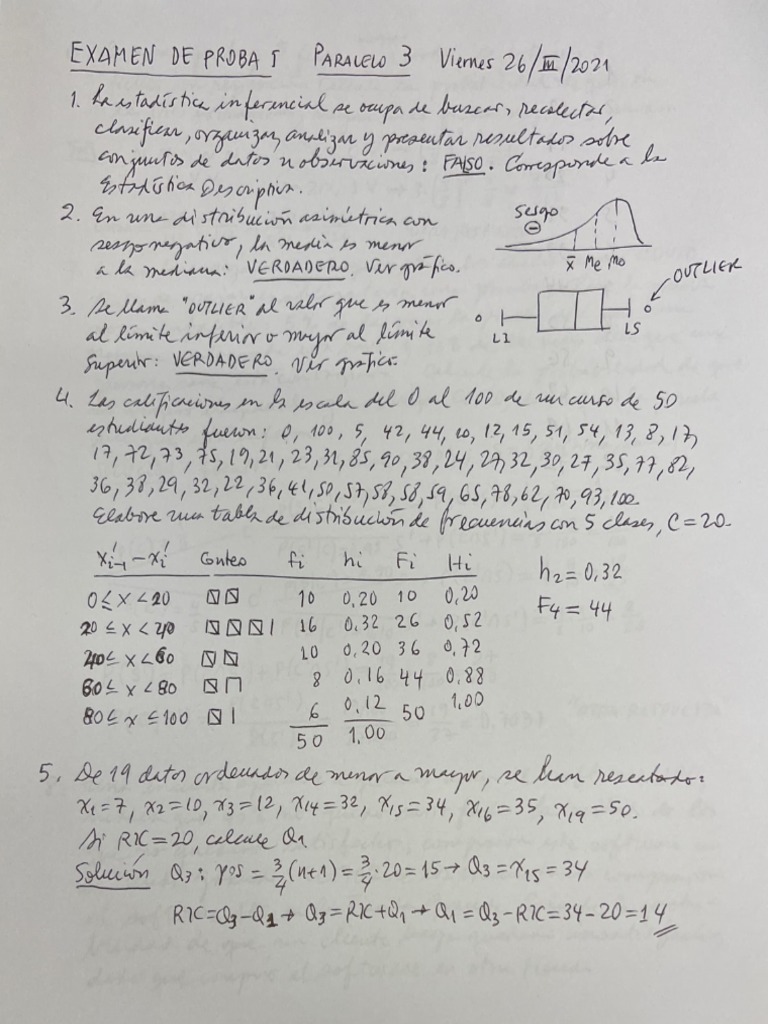 EXAMEN DE PROBA I PARALELO 3 Viernes 26/III/2021
1. La estadística inferencial se ocupa de buscar, recolectar,
clasificar, organizar, analizar y presentar resultados sobre
conjuntos de datos u observaciones: FALSO. Corresponde a la
Estadística Descriptiva.
2. En una distribución asimétrica con
sesgo negativo, la media es menor
a la mediana: VERDADERO. Ver gráfico.
Sesgo
⊖
x̄ Me Mo
3. Se llama "OUTLIER" al valor que es menor
al límite inferior o mayor al límite
Superior: VERDADERO. Ver gráfico.
OUTLIER
LI LS
4. Las calificaciones en la escala del 0 al 100 de un curso de 50
estudiantes fueron: 0, 100, 5, 42, 44, 10, 12, 15, 51, 54, 13, 8, 17,
17, 72, 73, 75, 19, 21, 23, 31, 85, 90, 38, 24, 27, 32, 30, 27, 35, 77, 82,
36, 38, 29, 32, 22, 36, 41, 50, 57, 58, 58, 59, 65, 78, 62, 70, 93, 100.
Elabore una tabla de distribución de frecuencias con 5 clases, C=20.
x'i-1 – x'i Conteo fi hi Fi Hi
0 ≤ x < 20 10 0,20 10 0,20
20 ≤ x < 40 16 0,32 26 0,52
40 ≤ x < 60 10 0,20 36 0,72
60 ≤ x < 80 8 0,16 44 0,88
80 ≤ x ≤ 100 6 0,12 50 1,00
50 1,00
h2 = 0,32
F4 = 44
5. De 19 datos ordenados de menor a mayor, se han rescatado:
x1=7, x2=10, x3=12, x14=32, x15=34, x16=35, x19=50.
Si RIC=20, calcule Q1.
Solución Q3: pos = 3/4(n+1) = 3/4·20 = 15 → Q3 = x15 = 34
RIC=Q3-Q1 → Q3=RIC+Q1 → Q1=Q3-RIC=34-20=14